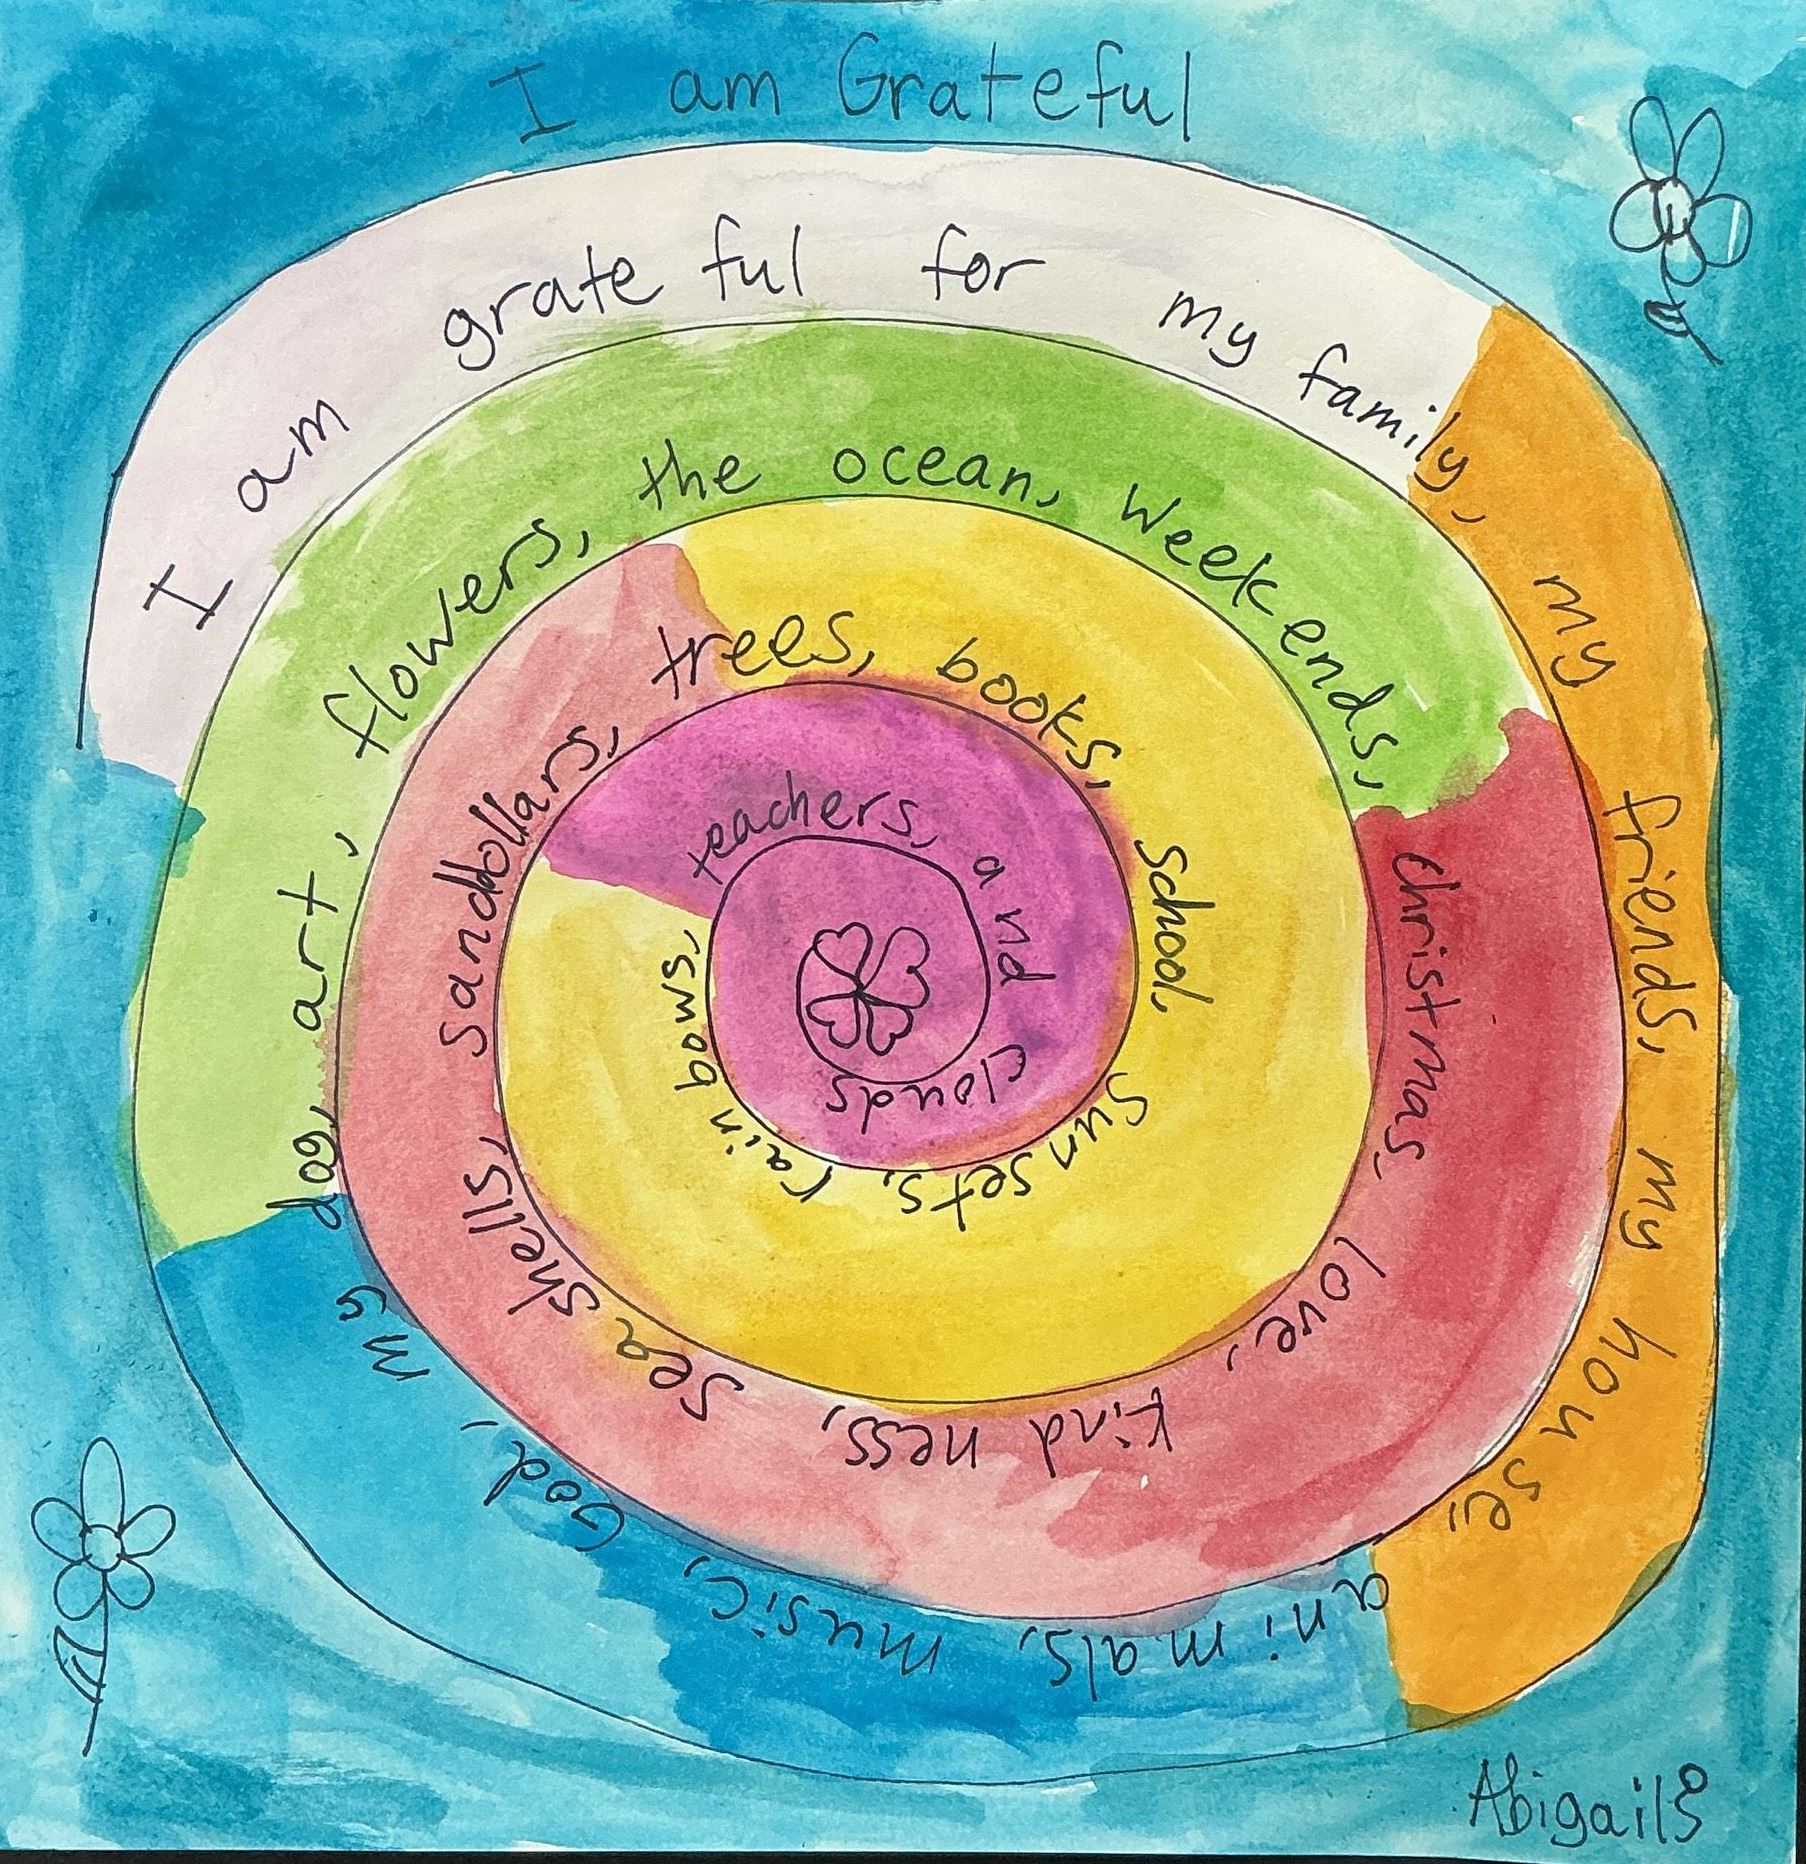 I am Grateful
I am grateful for my family, my friends, my house, animals, music, God, my dog, art, flowers, the ocean, weekends, christmas, love, kindness, sea shells, sanddollars, trees, books, school, sunsets, rainbows, teachers, and clouds
Abigail S